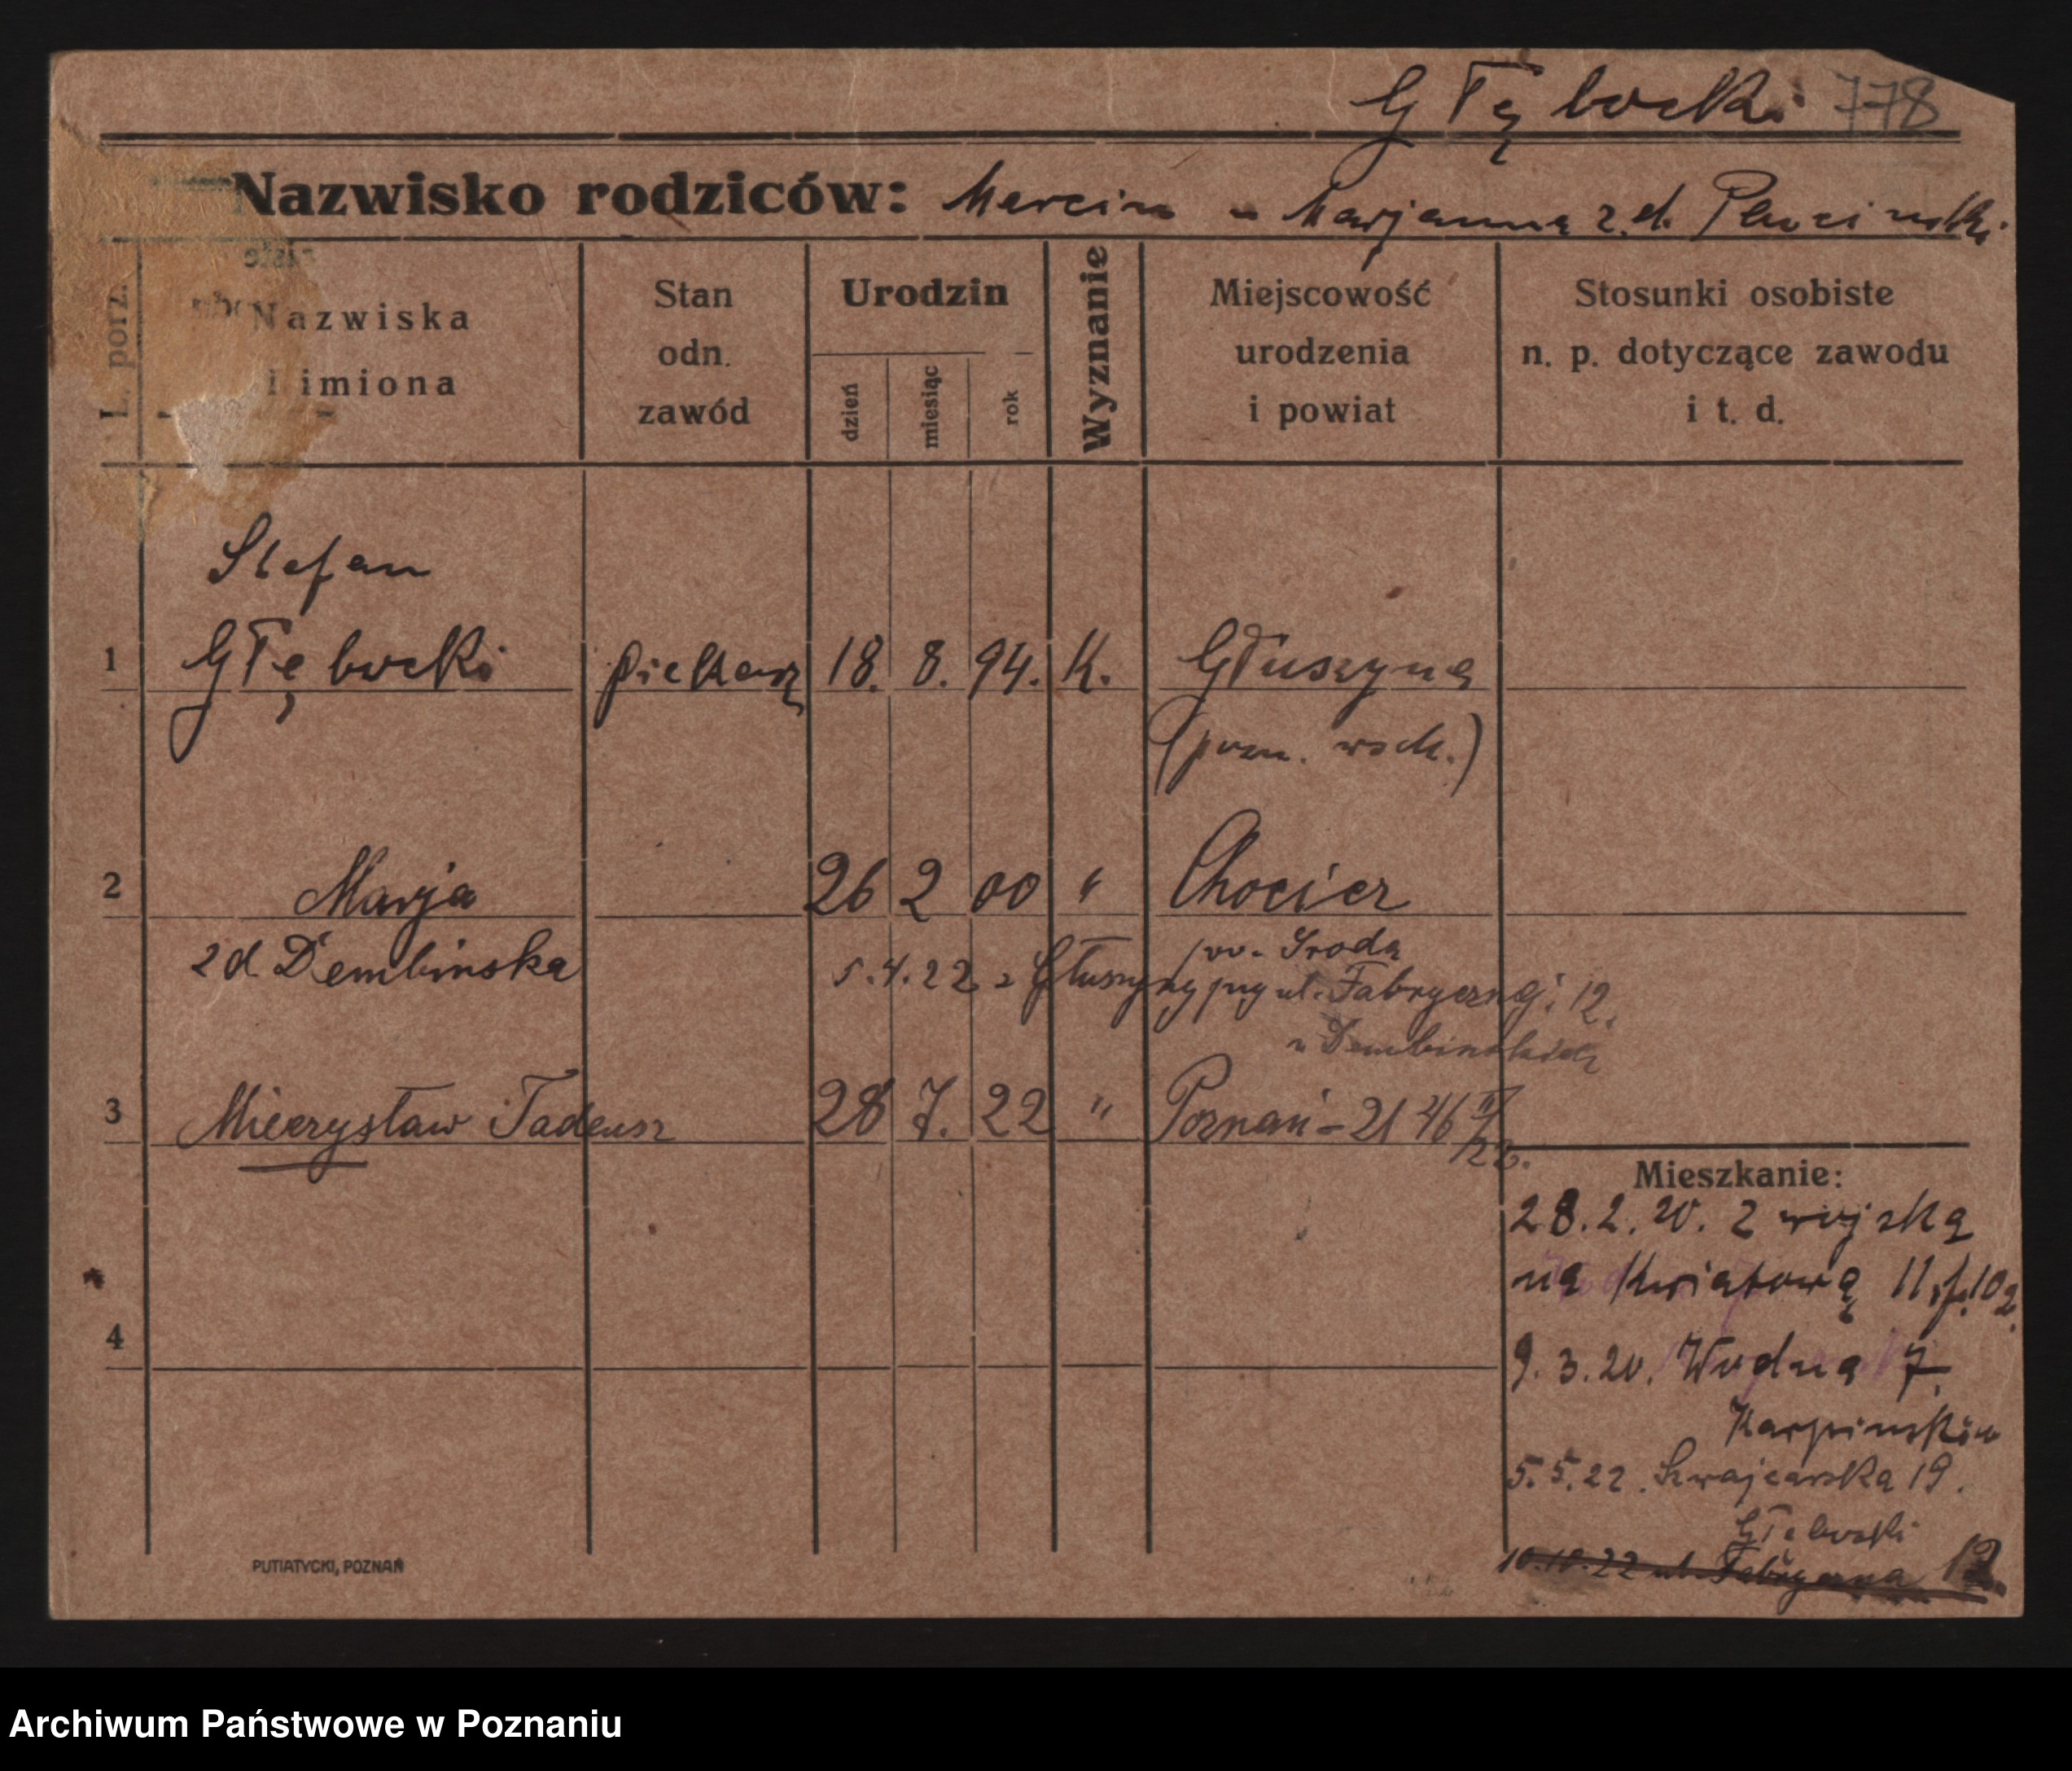 Głębocki 778
Nazwisko rodziców: Marcin u Marjanna z.d.
L. porz.
Nazwiska i imiona
Stan odn. zawód
Urodzin
dzień miesiąc rok
Wyznanie
Miejscowość urodzenia i powiat
Stosunki osobiste n. p. dotyczące zawodu i t. d.
Stefan
1 Głębocki piekarz 18. 8. 94. K. Głuszyna
(pozn. wsch.)
2 Marja 26 2 00 " Chocicz
zd Dembinska pow. Sroda
5.4.22 z Głuszyny ul. Fabrycznej 12.
u Dembinskich
3 Mieczysław Tadeusz 28 7. 22 " Poznań - 2146
Mieszkanie:
28.2.20. z wojska
na Kwiatową 11,
9.3.20. Wodna 7.
Karpinski
5.5.22. Szwajcarska 19.
Głębocki
10.10.22 ul. Fabryczna 12.
4
PUTIATYCKI, POZNAŃ
Archiwum Państwowe w Poznaniu